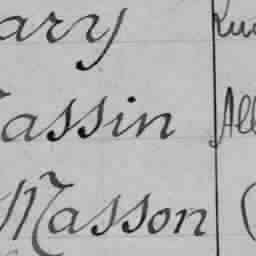 ary
assin All
Masson